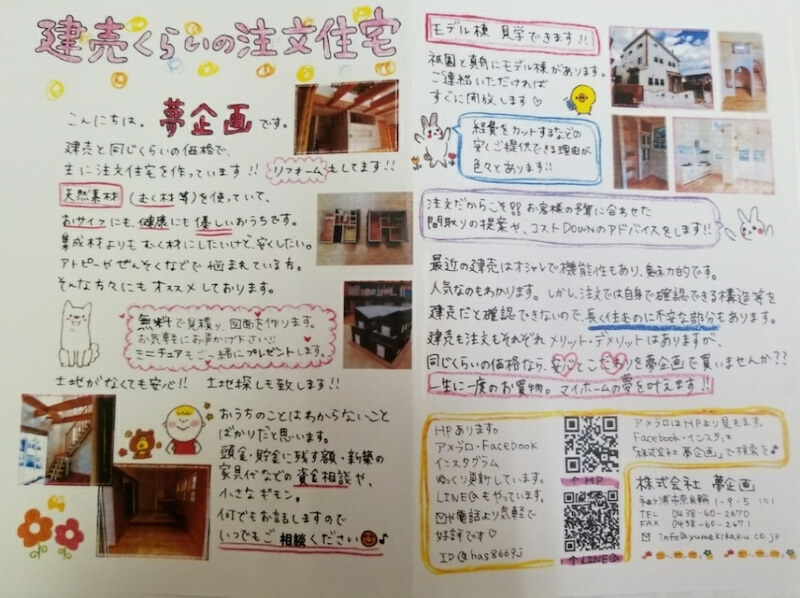 建売くらいの注文住宅
こんにちは。夢企画です。
建売と同じくらいの価格で、
主に注文住宅を作っています!! リフォームもしてます!!
天然素材(むく材等)を使っていて、
おサイフにも、健康にも優しいおうちです。
集成材よりもむく材にしたいけど、安くしたい。
アトピーやぜんそくなどで悩まれている方。
そんな方々にもオススメしております。
無料で見積り、図面を作ります。
お気軽にお声掛け下さい!!
ミニチュアもご一緒にプレゼントします。
土地がなくても安心!! 土地探しも致します!!
おうちのことはわからないこと
ばかりだと思います。
頭金・貯金に残す額・新築の
家具代などの資金相談や、
小さなギモン。
何でもお話しますので
いつでもご相談ください♪
モデル棟 見学できます!!
祇園と真舟にモデル棟があります。
ご連絡いただければ
すぐに開放します♡
経費をカットするなどの
安くご提供できる理由が
色々とあります!!
注文だからこそ!! お客様の予算に合わせた
間取りの提案や、コストDOWNのアドバイスをします!!
最近の建売はオシャレで機能性もあり、魅力的です。
人気なのもわかります。しかし、注文では自身で確認できる構造等を
建売だと確認できないので、長く住むものに不安な部分もあります。
建売も注文もそれぞれメリット・デメリットはありますが、
同じくらいの価格なら、安心とこだわりを夢企画で買いませんか??
一生に一度のお買物。マイホームの夢を叶えます!!
HPあります。
アメブロ・Facebook
インスタグラム
ゆっくり更新しています。
LINE@もやっています。
✉や電話より気軽で
好評です♡
ID@has8669j
↑HP
↑LINE@
アメブロはHPより見えます。
Facebook・インスタは
「株式会社 夢企画」で検索を♪
株式会社 夢企画
袖ケ浦市奈良輪1-9-5 101
TEL 0438-60-2670
FAX 0438-60-2671
✉ info@yumekikaku.co.jp